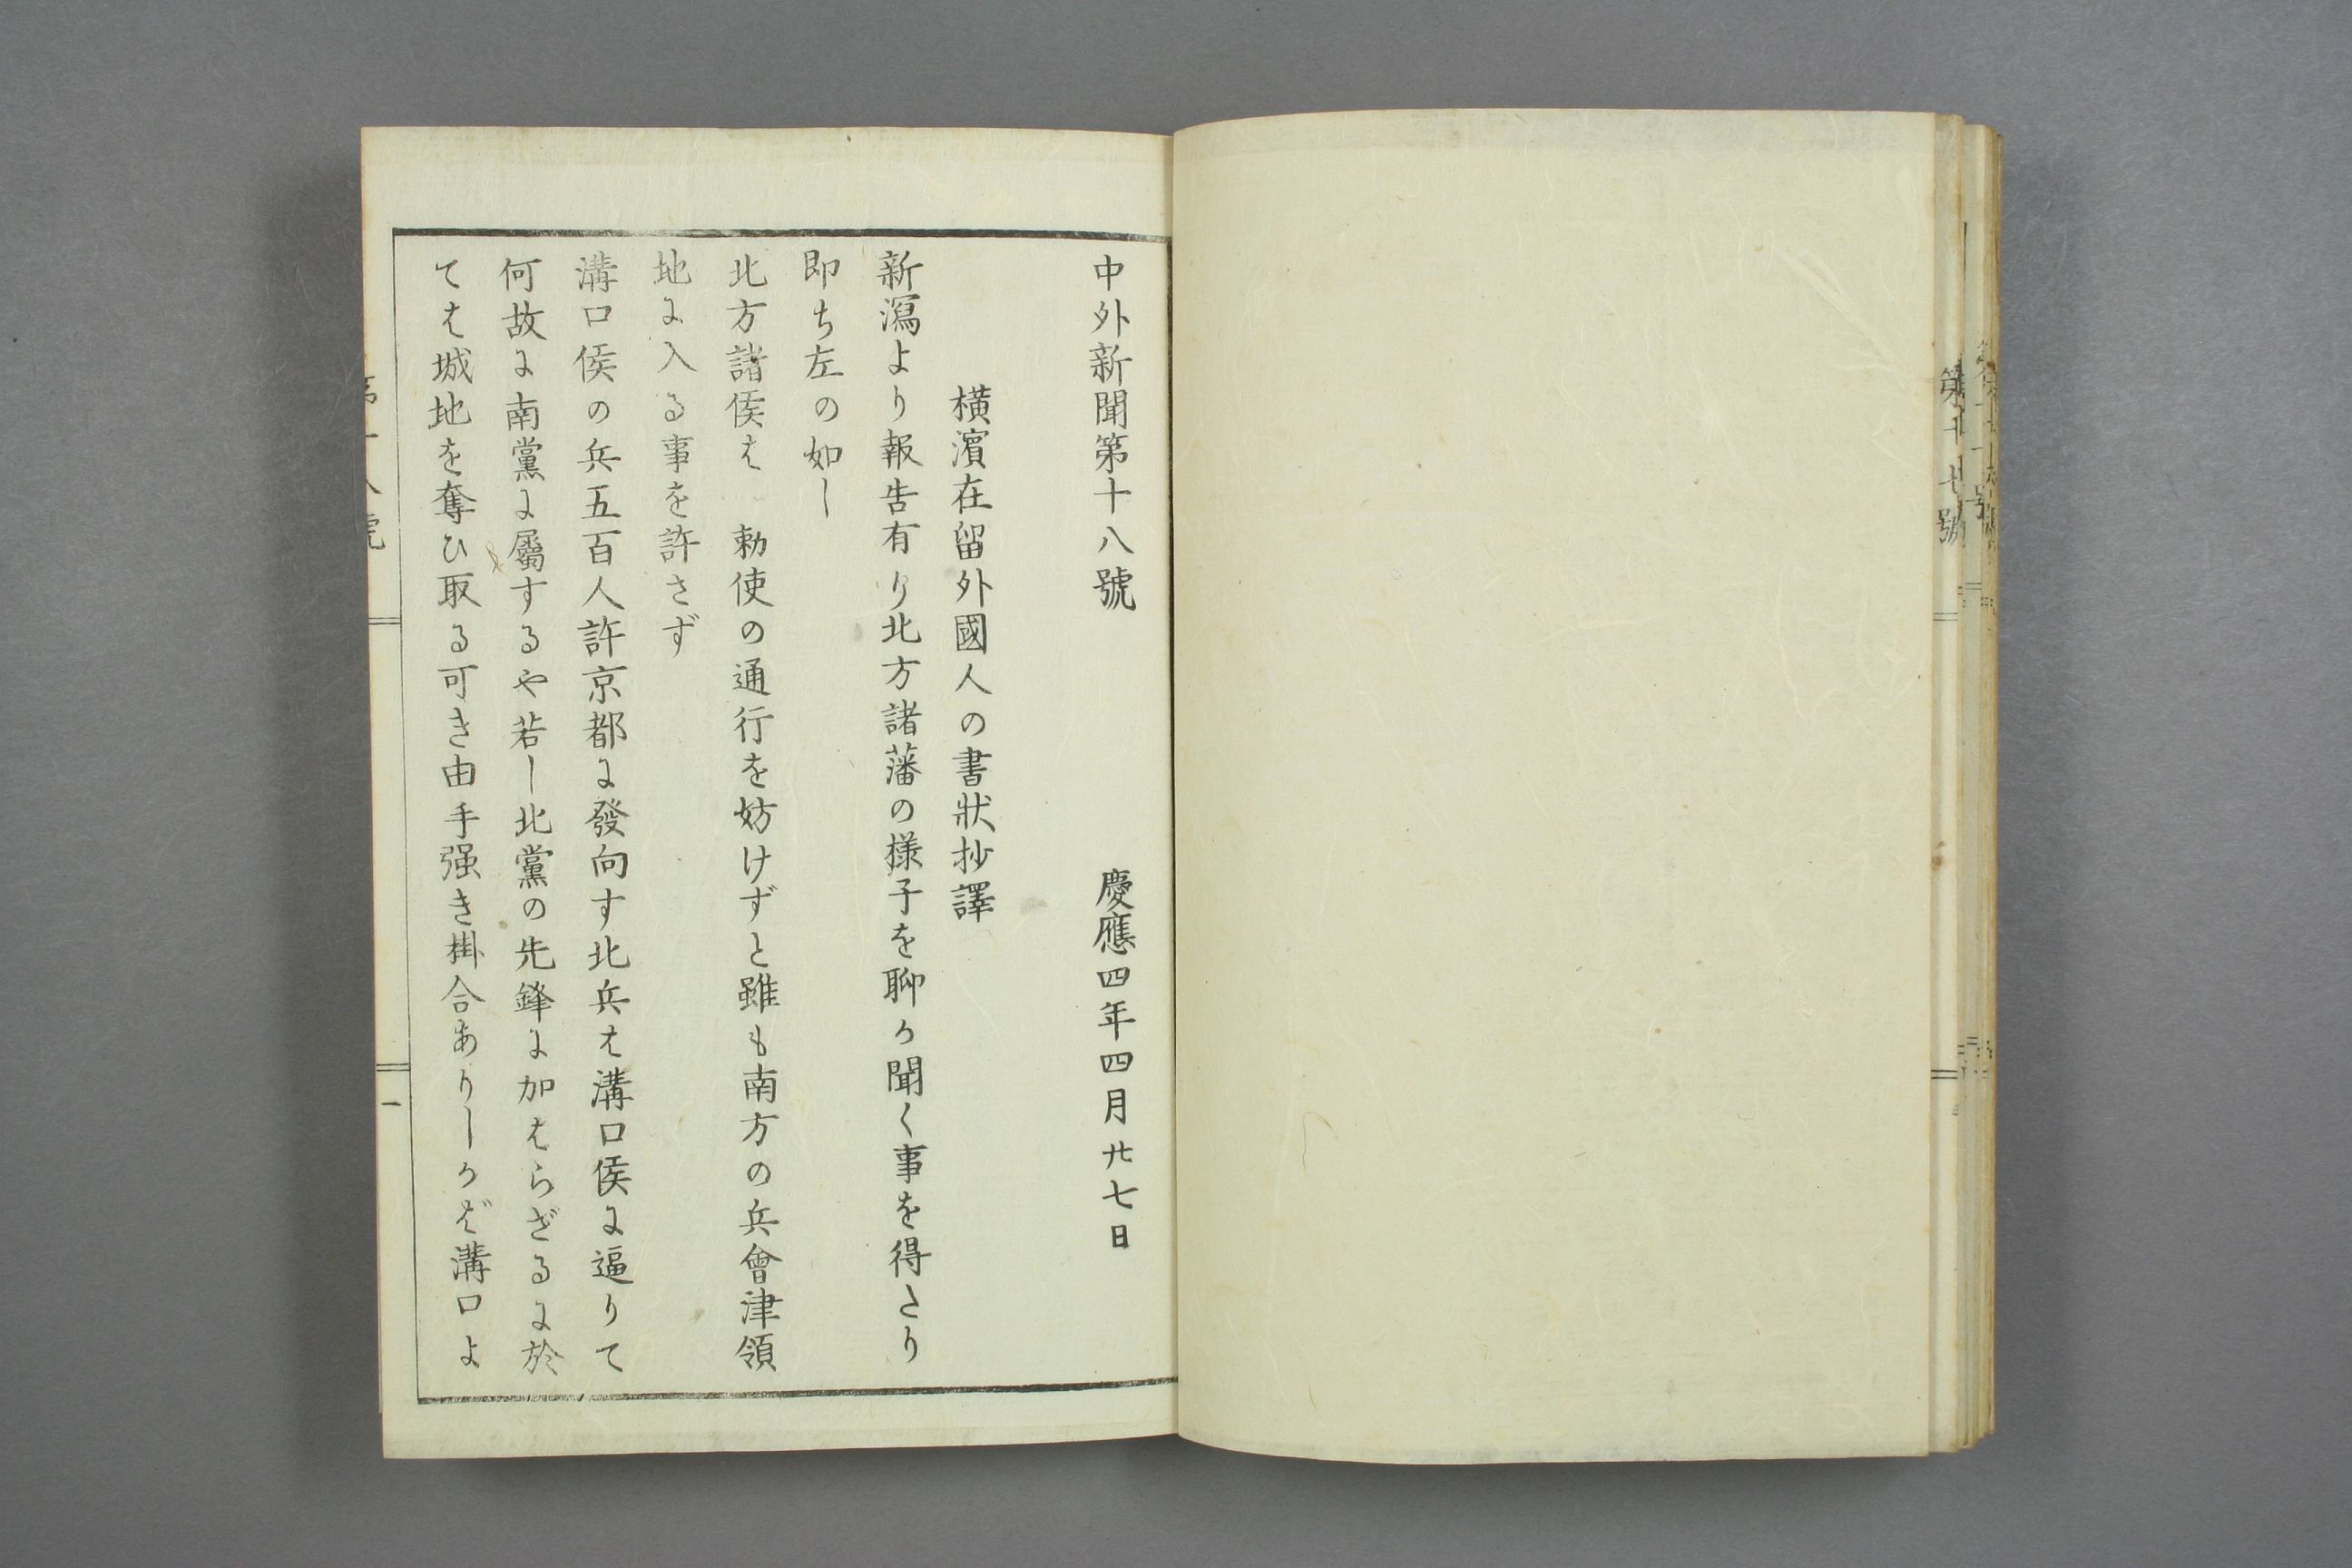 中外新聞第十八號　慶應四年四月廿七日
橫濱在留外國人の書狀抄譯
新潟より報告有り北方諸藩の様子を聊か聞く事を得たり
即ち左の如し
北方諸侯は　勅使の通行を妨けずと雖も南方の兵會津領
地に入る事を許さず
溝口侯の兵五百人許京都に發向す北兵は溝口侯に逼りて
何故に南黨に屬するや若し北黨の先鋒に加はらざるに於
ては城地を奪ひ取る可き由手强き掛合ありしかば溝口よ
一
第十七號